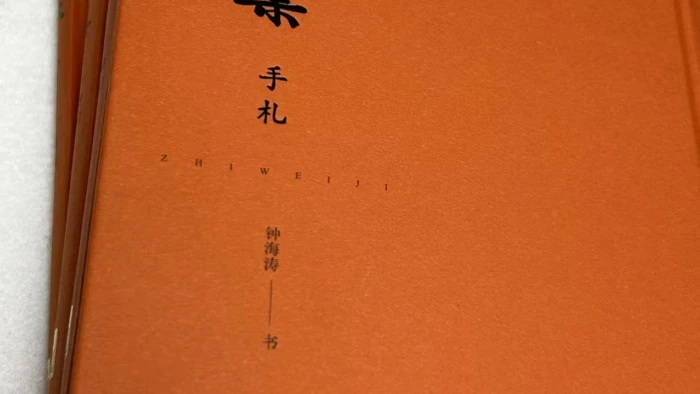 集
手札
ZHIWEIJI
钟海涛
书